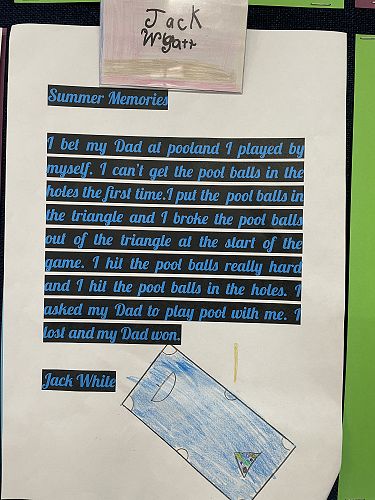 Jack
Wyatt
Summer Memories
I bet my Dad at pooland I played by
myself. I can't get the pool balls in the
holes the first time.I put the pool balls in
the triangle and I broke the pool balls
out of the triangle at the start of the
game. I hit the pool balls really hard
and I hit the pool balls in the holes. I
asked my Dad to play pool with me. I
lost and my Dad won.
Jack White